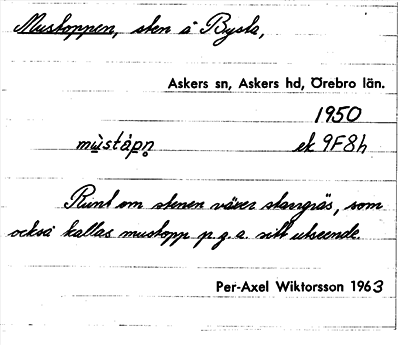 Mustoppen, sten å Bysta,
Askers sn, Askers hd, Örebro län.
1950
mùstápn̥ ek 9F8h
Runt om stenen växer starrgräs, som
också kallas mustopp p.g.a. sitt utseende.
Per-Axel Wiktorsson 1963